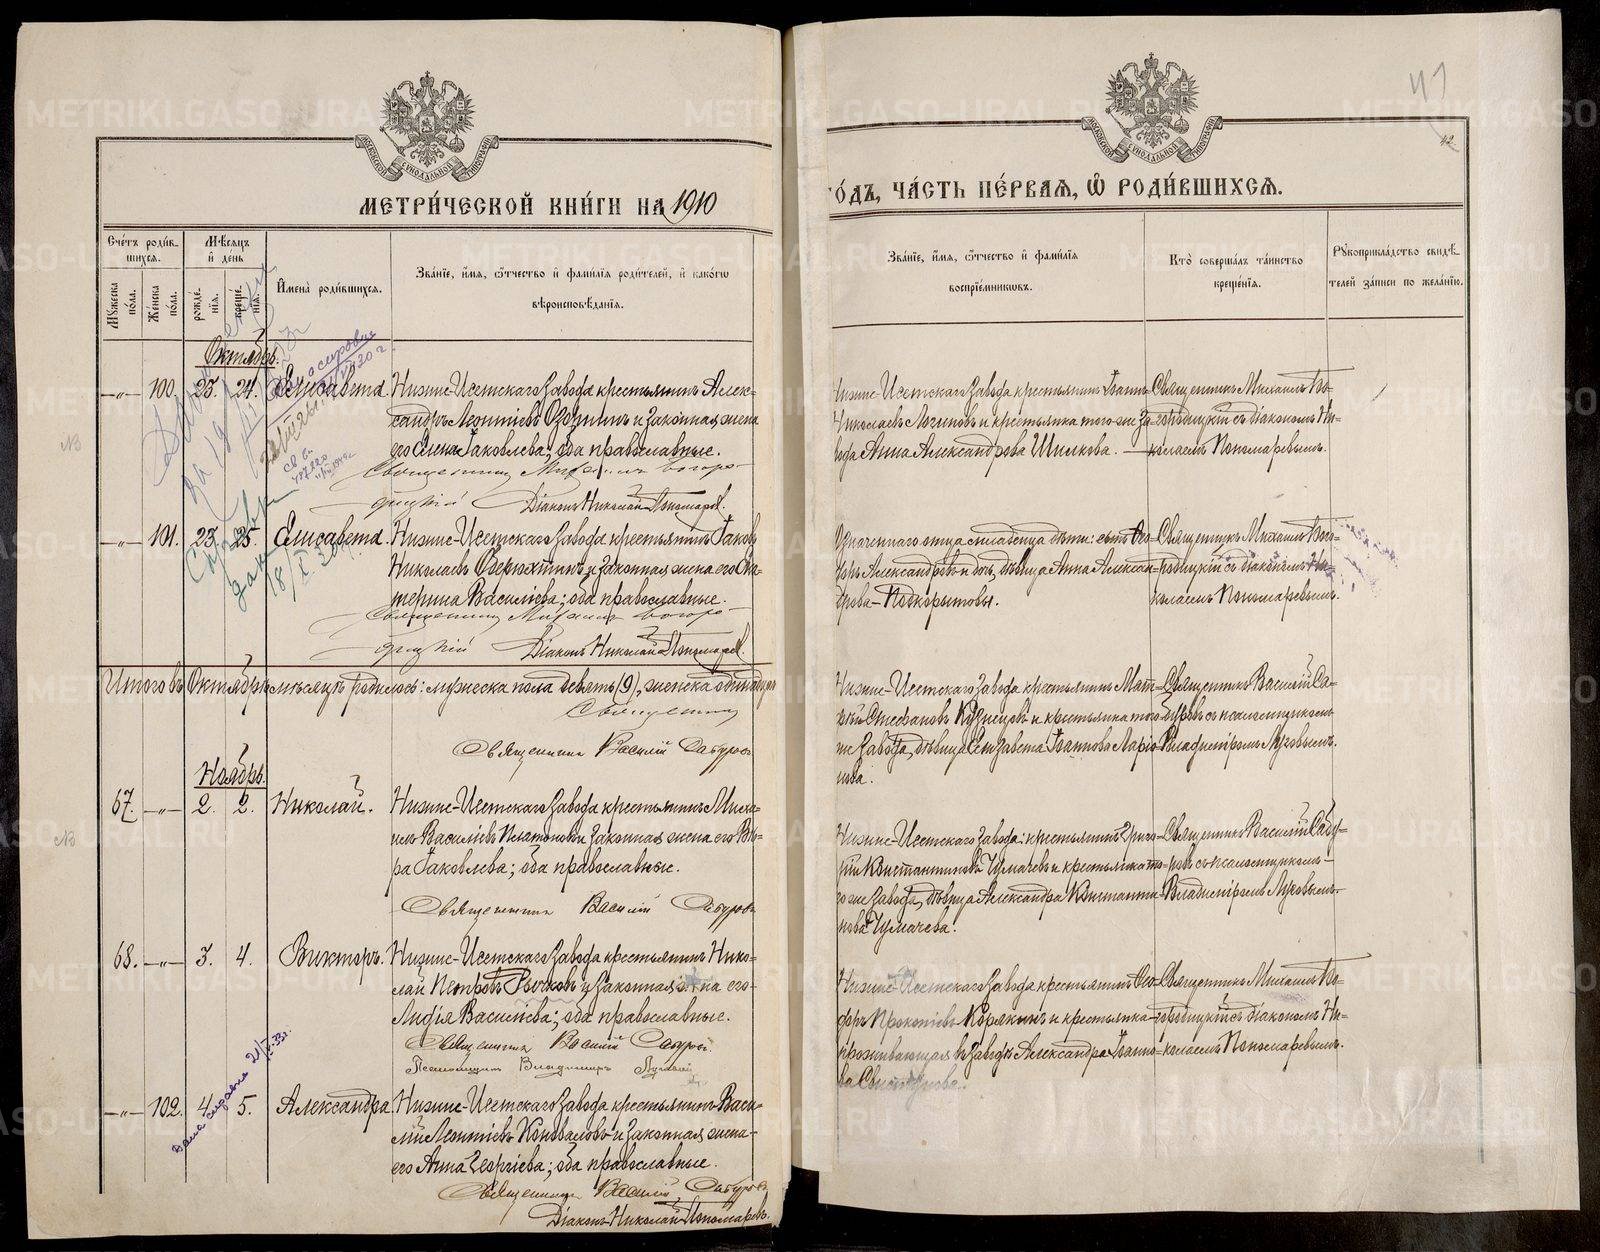 МЕТРИ́ЧЕСКОЙ КНИ́ГИ НА 1910
Сче́тъ роди́в-
шихся.
Мѣ́сяцъ
и҆ день
Му́жеска
по́ла.
Же́нска
по́ла.
рожде́-
нія.
креще́-
нія.
И҆мена̀ роди́вшихся.
Зва́ніе, и҆́мя, ѻ҆́тчество и҆ фами́лія роди́телей, и҆ како́гѡ
вѣроисповѣ́данія.
Октябрь.
—„— 100. 23. 24. Елисавета Нижне-Исетскаго Завода крестьянинъ Алек-
сандръ Леонтіевъ и законная жена
его Елена Іаковлева; оба православные.
Священникъ Михаилъ Бого-
родицкій
Діаконъ Николай Пономаревъ.
—„— 101. 23. 25. Елисавета. Нижне-Исетскаго Завода крестьянинъ Іаковъ
Николаевъ и законная жена его Ека-
терина Васильева; оба православные.
Священникъ Михаилъ Бого-
родицкій
Діаконъ Николай Пономаревъ.
Итого въ Октябрѣ мѣсяцѣ родилось: мужеска пола девять (9), женска
Священникъ
Священникъ Василій Сабуровъ
Ноябрь.
67. —„— 2. 2. Николай. Нижне-Исетскаго Завода крестьянинъ Миха-
илъ Василіевъ Платоновъ и законная жена его Вѣ-
ра Іаковлева; оба православные.
Священникъ Василій Сабуровъ
68. —„— 3. 4. Викторъ. Нижне-Исетскаго Завода крестьянинъ Нико-
лай Петровъ Рычковъ и законная жена его
Лидія Васильева; оба православные.
Священникъ Василій Сабуровъ
Псаломщикъ Владимиръ Луговый
—„— 102. 4. 5. Александра. Нижне-Исетскаго Завода крестьянинъ Васи-
лій Леонтіевъ Коноваловъ и законная жена
его Анна Георгіева; оба православные.
Священникъ Василій Сабуровъ
Діаконъ Николай Пономаревъ.
42
ГО́ДЪ, ЧА́СТЬ ПЕ́РВАЯ, Ѡ҆ РОДИ́ВШИХСЯ.
Зва́ніе, и҆́мя, ѻ҆́тчество и҆ фами́лія
воспрїе́мниковъ.
Кто̀ соверша́лъ та́инство
креще́нія.
Рꙋкоприкла́дство свидѣ́-
телей за́писи по жела́нію.
Нижне-Исетскаго Завода крестьянинъ Іоаннъ
Николаевъ Логиновъ и крестьянка того же За-
вода Анна Александрова Шилкова.
Священникъ Михаилъ Бо-
городицкій съ діакономъ Ни-
колаемъ Пономаревымъ.
Означеннаго отца младенца дѣти: сынъ Ѳео-
доръ Александровъ и дочь, дѣвица Анна Алексан-
дрова Подкорытовы.
Священникъ Михаилъ Бого-
родицкій съ діакономъ Ни-
колаемъ Пономаревымъ.
Нижне-Исетскаго Завода крестьянинъ Мат-
ѳій Стефановъ Кузнецовъ и крестьянка того
же Завода, дѣвица Елизавета Іоаннова Ларіо-
нова.
Священникъ Василій Са-
буровъ съ псаломщикомъ
Владимиромъ Луговымъ.
Нижне-Исетскаго Завода: крестьянинъ Григо-
рій Константиновъ Чумачевъ и крестьянка то-
го же Завода, дѣвица Александра Константи-
нова Чумачева.
Священникъ Василій Сабу-
ровъ съ псаломщикомъ
Владиміромъ Луговымъ.
Нижне-Исетскаго Завода крестьянинъ Ѳео-
доръ Прокопіевъ Корякинъ и крестьянка
проживающая въ Заводѣ Александра Іоанно-
ва
Священникъ Михаилъ Бо-
городицкій съ діакономъ Ни-
колаемъ Пономаревымъ.